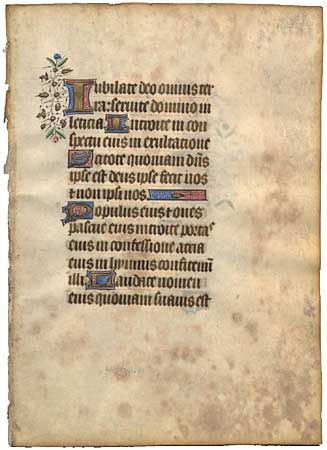 Iubilate deo omnis ter
ra: seruite domino in
leticia. Introite in con
spectu eius in exultatione
Scitote quoniam dñs
ipse est deus ipse fecit nos
et non ipsi nos.
Populus eius et oues
pascue eius introite portas
eius in confessione atria
eius in hymnis confitemī
illi Laudate nomen
eius quoniam suauis est